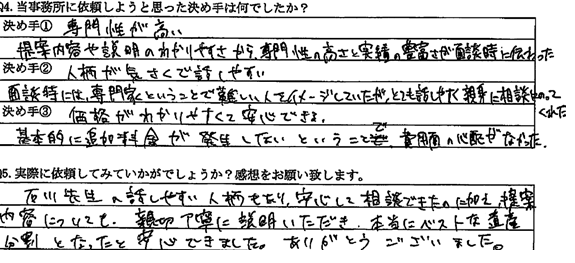 Q4. 当事務所に依頼しようと思った決め手は何でしたか？
決め手① 専門性が高い
提案内容や説明のわかりやすさから、専門性の高さと実績の豊富さが面談時に伝わった
決め手② 人柄が気さくで話しやすい
面談時には、専門家ということで難しい人をイメージしていたが、とても話しやすく親身に相談にのって
くれた
決め手③ 価格がわかりやすくて安心できる。
基本的に追加料金が発生しないということで、費用面の心配がなかった。
Q5. 実際に依頼してみていかがでしょうか？感想をお願い致します。
石川先生の話しやすい人柄もあり、安心して相談できたのに加え、提案
内容についても、親切丁寧に説明いただき、本当にベストな遺産
分割となったと安心できました。ありがとうございました。